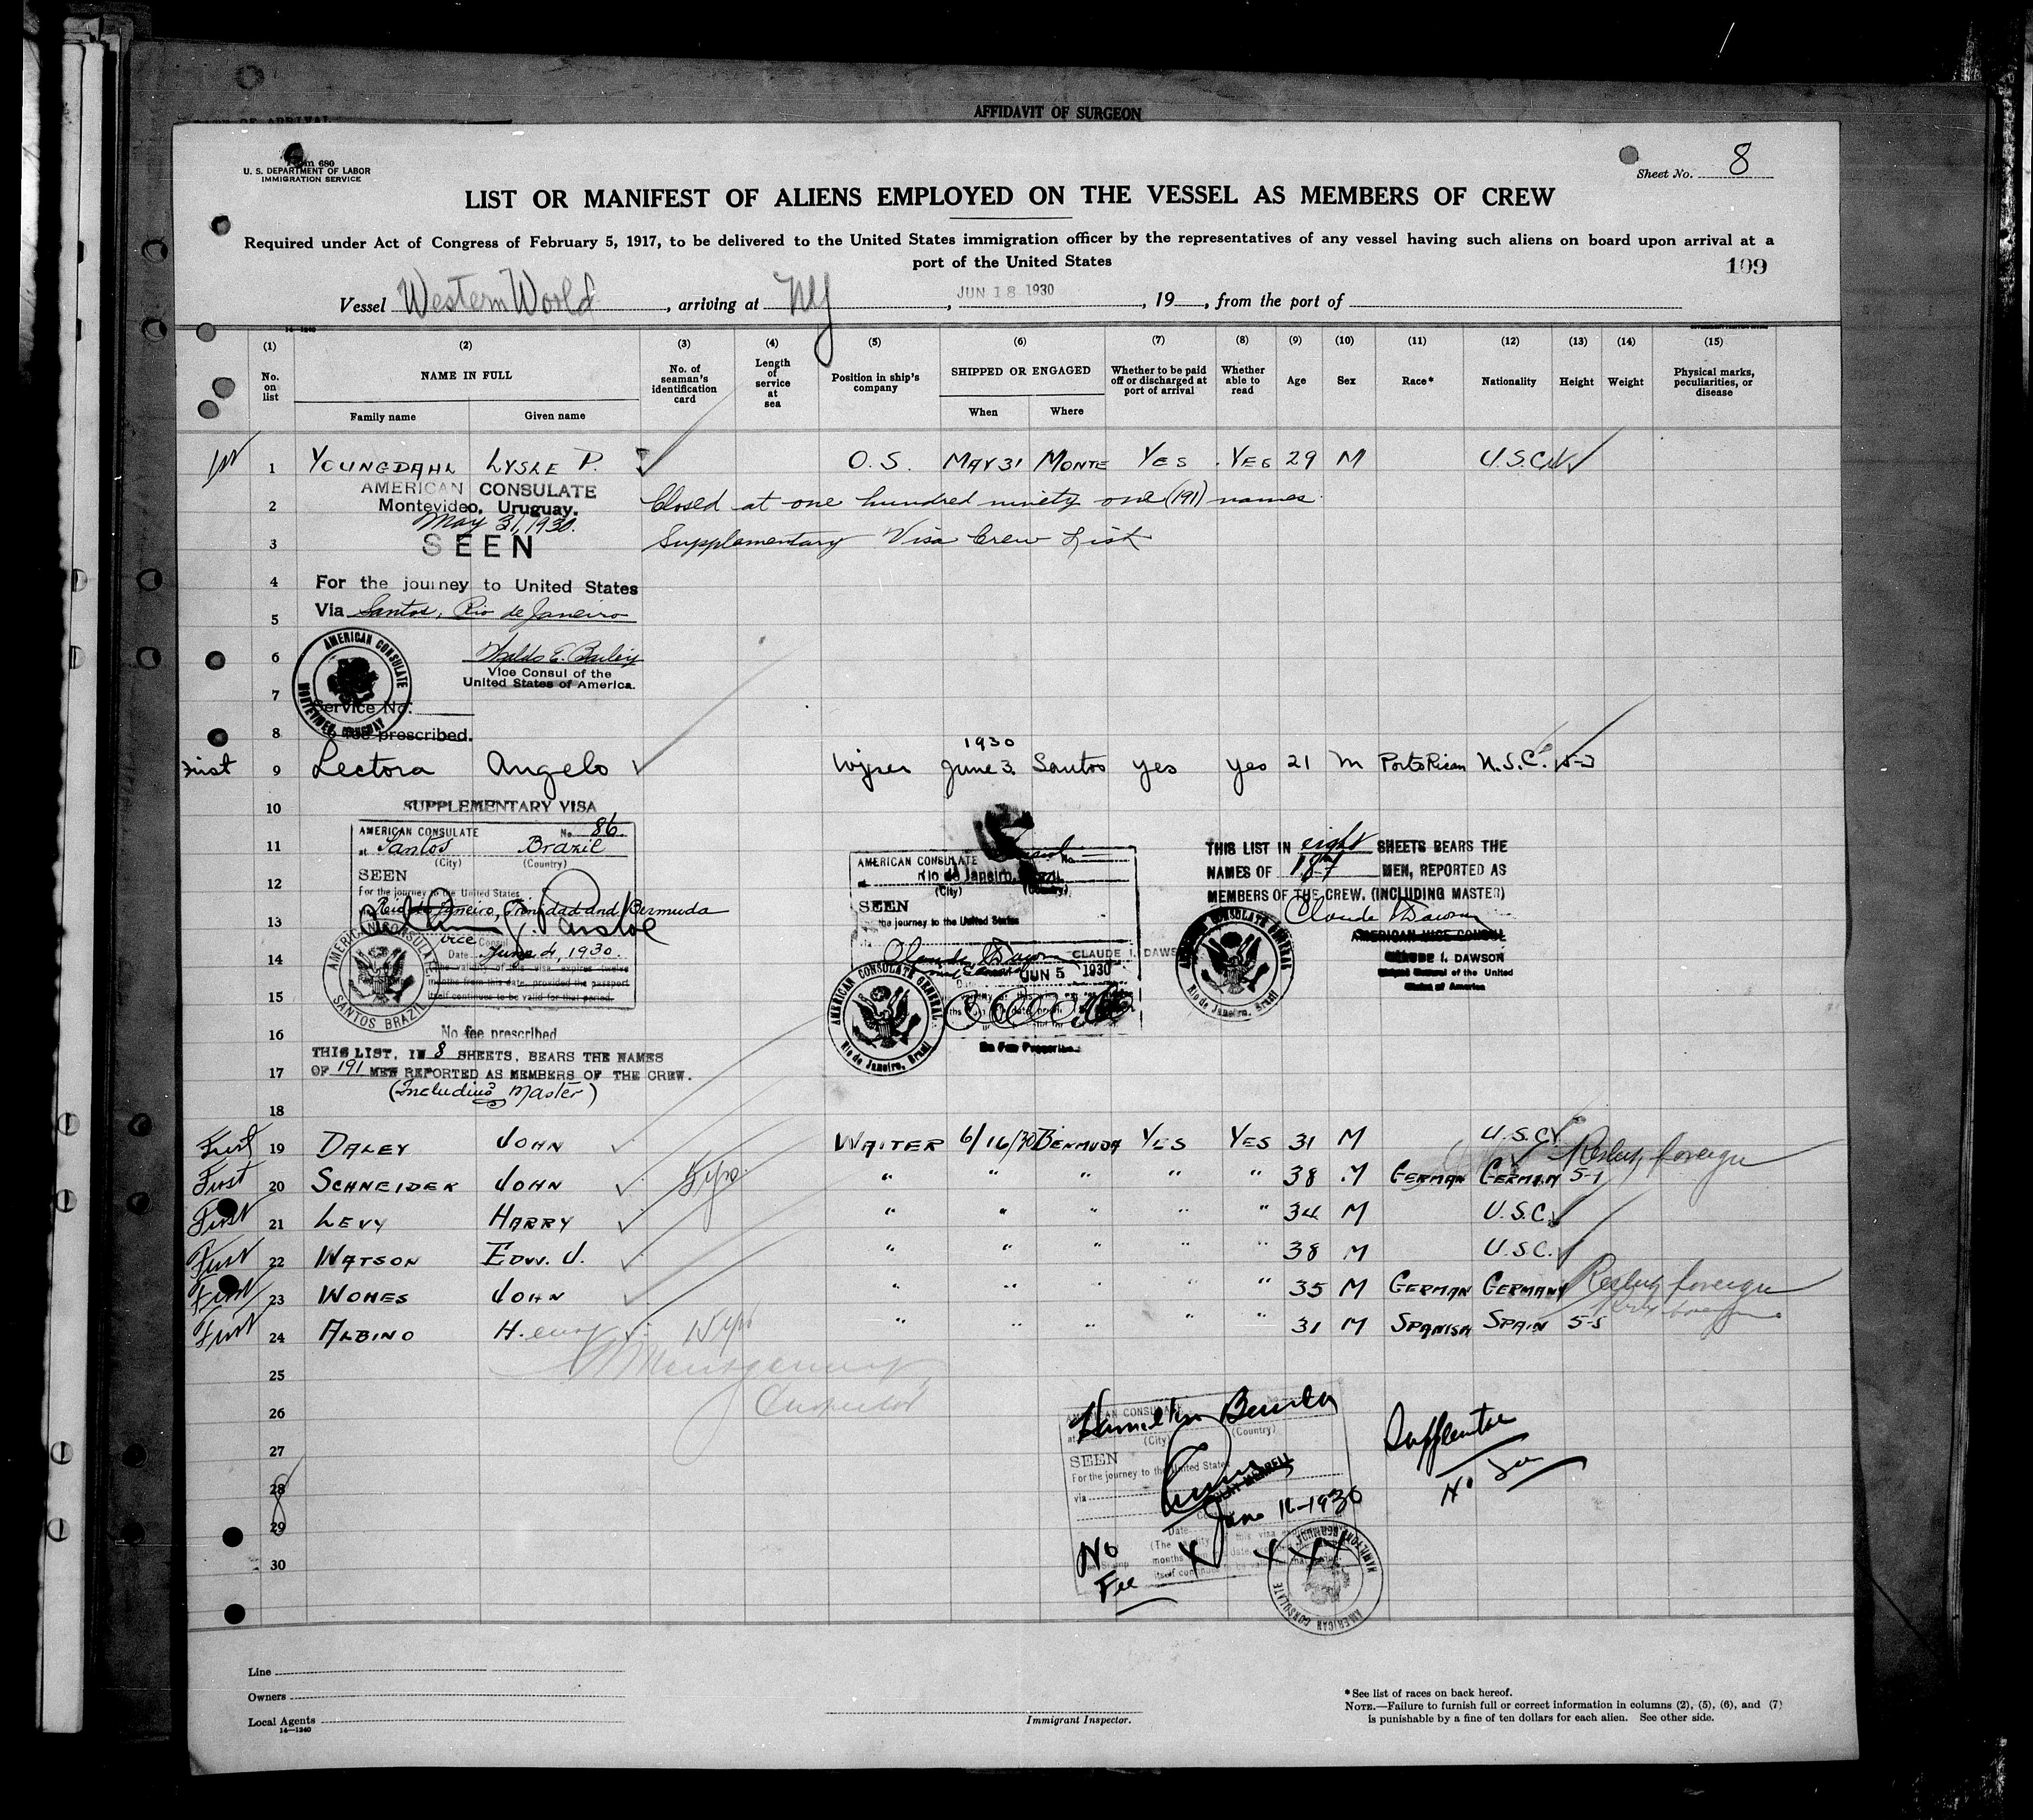 AFFIDAVIT OF SURGEON
Form 680
U. S. DEPARTMENT OF LABOR
IMMIGRATION SERVICE
Sheet No. 8
LIST OR MANIFEST OF ALIENS EMPLOYED ON THE VESSEL AS MEMBERS OF CREW
Required under Act of Congress of February 5, 1917, to be delivered to the United States immigration officer by the representatives of any vessel having such aliens on board upon arrival at a
port of the United States
109
Vessel Western World, arriving at NY, JUN 18 1930, 19, from the port of
14-1240
(1) (2) (3) (4) (5) (6) (7) (8) (9) (10) (11) (12) (13) (14) (15)
No. on list NAME IN FULL Family name Given name No. of seaman's identification card Length of service at sea Position in ship's company SHIPPED OR ENGAGED When Where Whether to be paid off or discharged at port of arrival Whether able to read Age Sex Race* Nationality Height Weight Physical marks, peculiarities, or disease
1st 1 YOUNGDAHL LYSLE P. O.S. MAY 31 MONTE YES YES 29 M U.S.C.
AMERICAN CONSULATE
2 Montevideo, Uruguay. Closed at one hundred ninety one (191) names
May 31, 1930.
3 SEEN Supplementary Visa Crew List
4 For the journey to United States
5 Via Santos, Rio de Janeiro
6 AMERICAN CONSULATE MONTEVIDEO, URUGUAY E. Bailey
Vice Consul of the
United States of America.
7 Service No.
8 fee prescribed.
1930
First 9 Lectora Angelo Wiper June 3. Santos yes yes 21 M PortoRican U.S.C. 5-3
10 SUPPLEMENTARY VISA
AMERICAN CONSULATE No. 86
11 at Santos Brazil
(City) (Country)
SEEN
12 For the journey to the United States
Rio de Janeiro, Trinidad and Bermuda
13
vice Consul
14 Date June 4, 1930.
The validity of this visa expires twelve
months from this date, provided the passport
15 itself continues to be valid for that period.
AMERICAN CONSULATE SANTOS BRAZIL
16 No fee prescribed
THIS LIST, IN 8 SHEETS, BEARS THE NAMES
17 OF 191 MEN REPORTED AS MEMBERS OF THE CREW.
(Including Master)
18
AMERICAN CONSULATE No.
Rio de Janeiro, Brazil
(City) (Country)
SEEN
the journey to the United States
via
CLAUDE I. DAWSON
Consul General
JUN 5 1930
AMERICAN CONSULATE GENERAL Rio de Janeiro, Brazil
No Fee Prescribed
THIS LIST IN eight SHEETS BEARS THE
NAMES OF 187 MEN, REPORTED AS
MEMBERS OF THE CREW. (INCLUDING MASTER)
Claude I Dawson
AMERICAN VICE CONSUL
CLAUDE I. DAWSON
Consul General of the United
States of America
AMERICAN CONSULATE GENERAL Rio de Janeiro, Brazil
First 19 DALEY JOHN WAITER 6/16/30 BERMUDA YES YES 31 M U.S.C.
First 20 SCHNEIDER JOHN 5 yrs " " " " " 38 M GERMAN GERMAN 5-7 foreign
First 21 LEVY HARRY " " " " " 34 M U.S.C.
First 22 WATSON EDW. J. " " " " " 38 M U.S.C.
First 23 WOHES JOHN " " " " " 35 M GERMAN GERMANY foreign
First 24 ALBINO H. 15 yrs " " " " " 31 M SPANISH SPAIN 5-5
25 Montgomery
26 Inspector
27
28
29
30
AMERICAN CONSULATE
at Hamilton Bermuda
(City) (Country)
SEEN
For the journey to the United States
via
June 16-1930
Date
No Fee
X XXX
AMERICAN CONSULATE HAMILTON, BERMUDA
No Fee
Line
Owners
Local Agents
14-1240
Immigrant Inspector.
* See list of races on back hereof.
NOTE.—Failure to furnish full or correct information in columns (2), (5), (6), and (7)
is punishable by a fine of ten dollars for each alien. See other side.